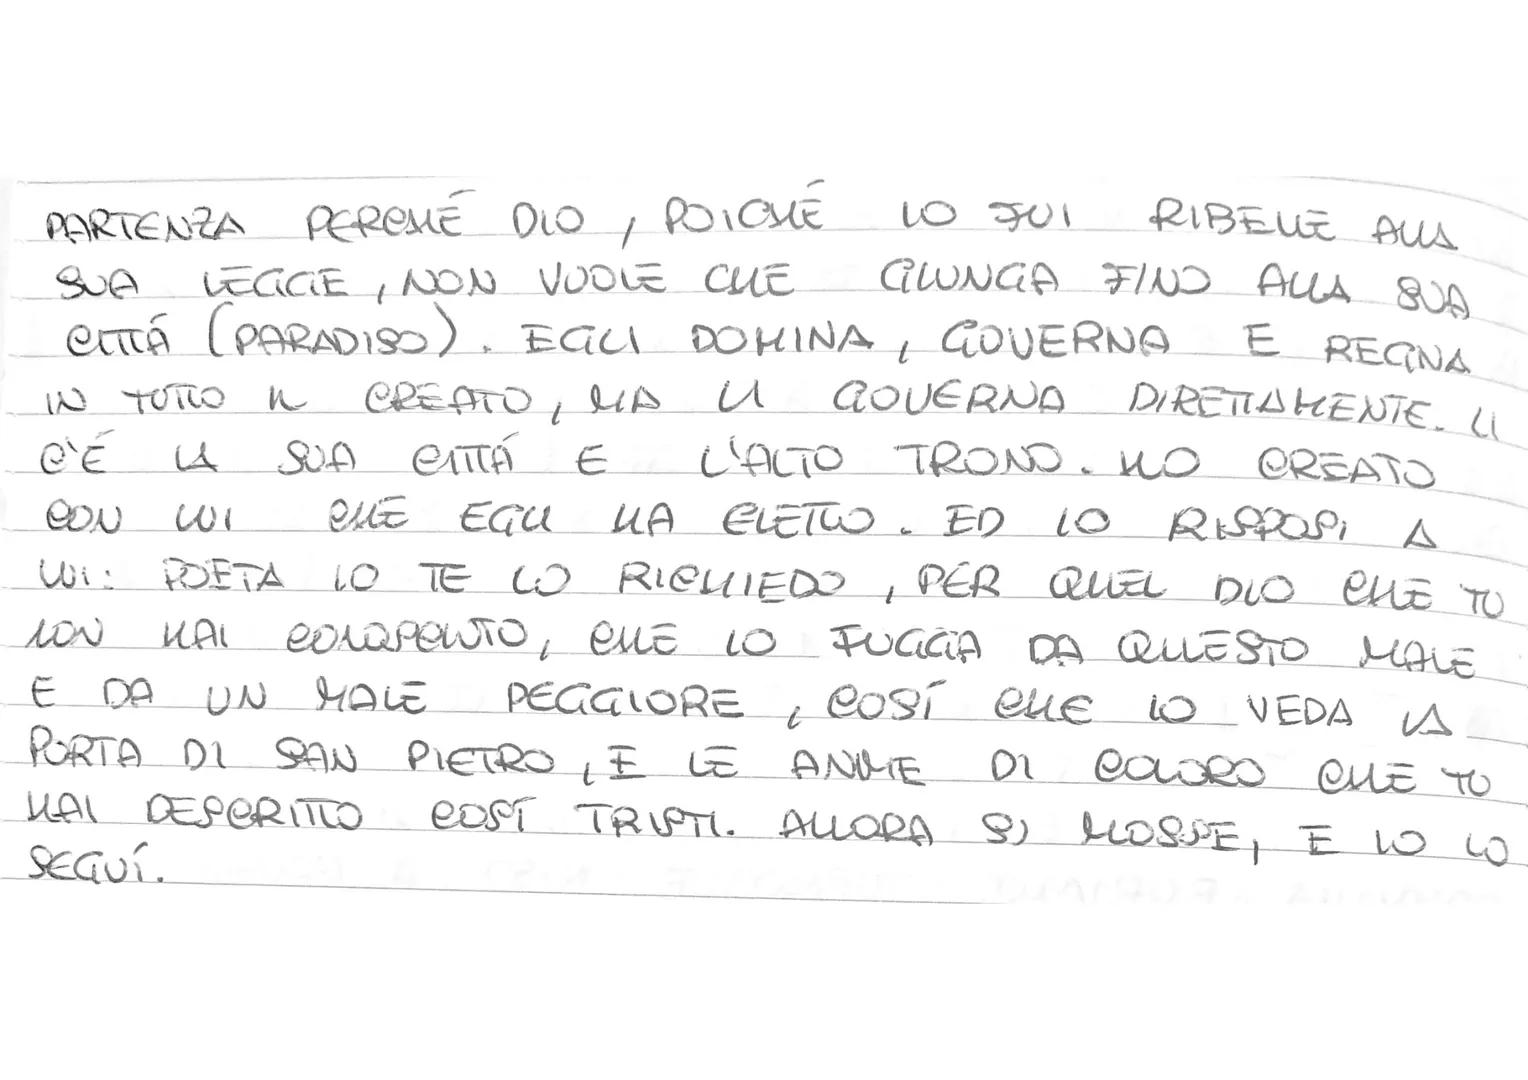 PARTENZA PERCHÉ DIO, POICHÉ IO FUI RIBELLE ALLA
SUA LEGGE, NON VUOLE CHE GIUNGA FINO ALLA SUA
CITTÁ (PARADISO). EGLI DOMINA, GOVERNA E REGNA
IN TUTTO IL CREATO, MA LÍ GOVERNA DIRETTAMENTE. LÍ
C'É LA SUA CITTÁ E L'ALTO TRONO. HO CREATO
CON LUI CHE EGLI HA ELETTO. ED IO RISPOSI A
LUI: POETA IO TE LO RICHIEDO, PER QUEL DIO CHE TU
NON HAI CONOSCIUTO, CHE IO FUGGA DA QUESTO MALE
E DA UN MALE PEGGIORE, COSÍ CHE IO VEDA LA
PORTA DI SAN PIETRO, E LE ANIME DI COLORO CHE TU
HAI DESCRITTO COSÍ TRISTI. ALLORA SI MOSSE, E IO LO
SEGUÍ.